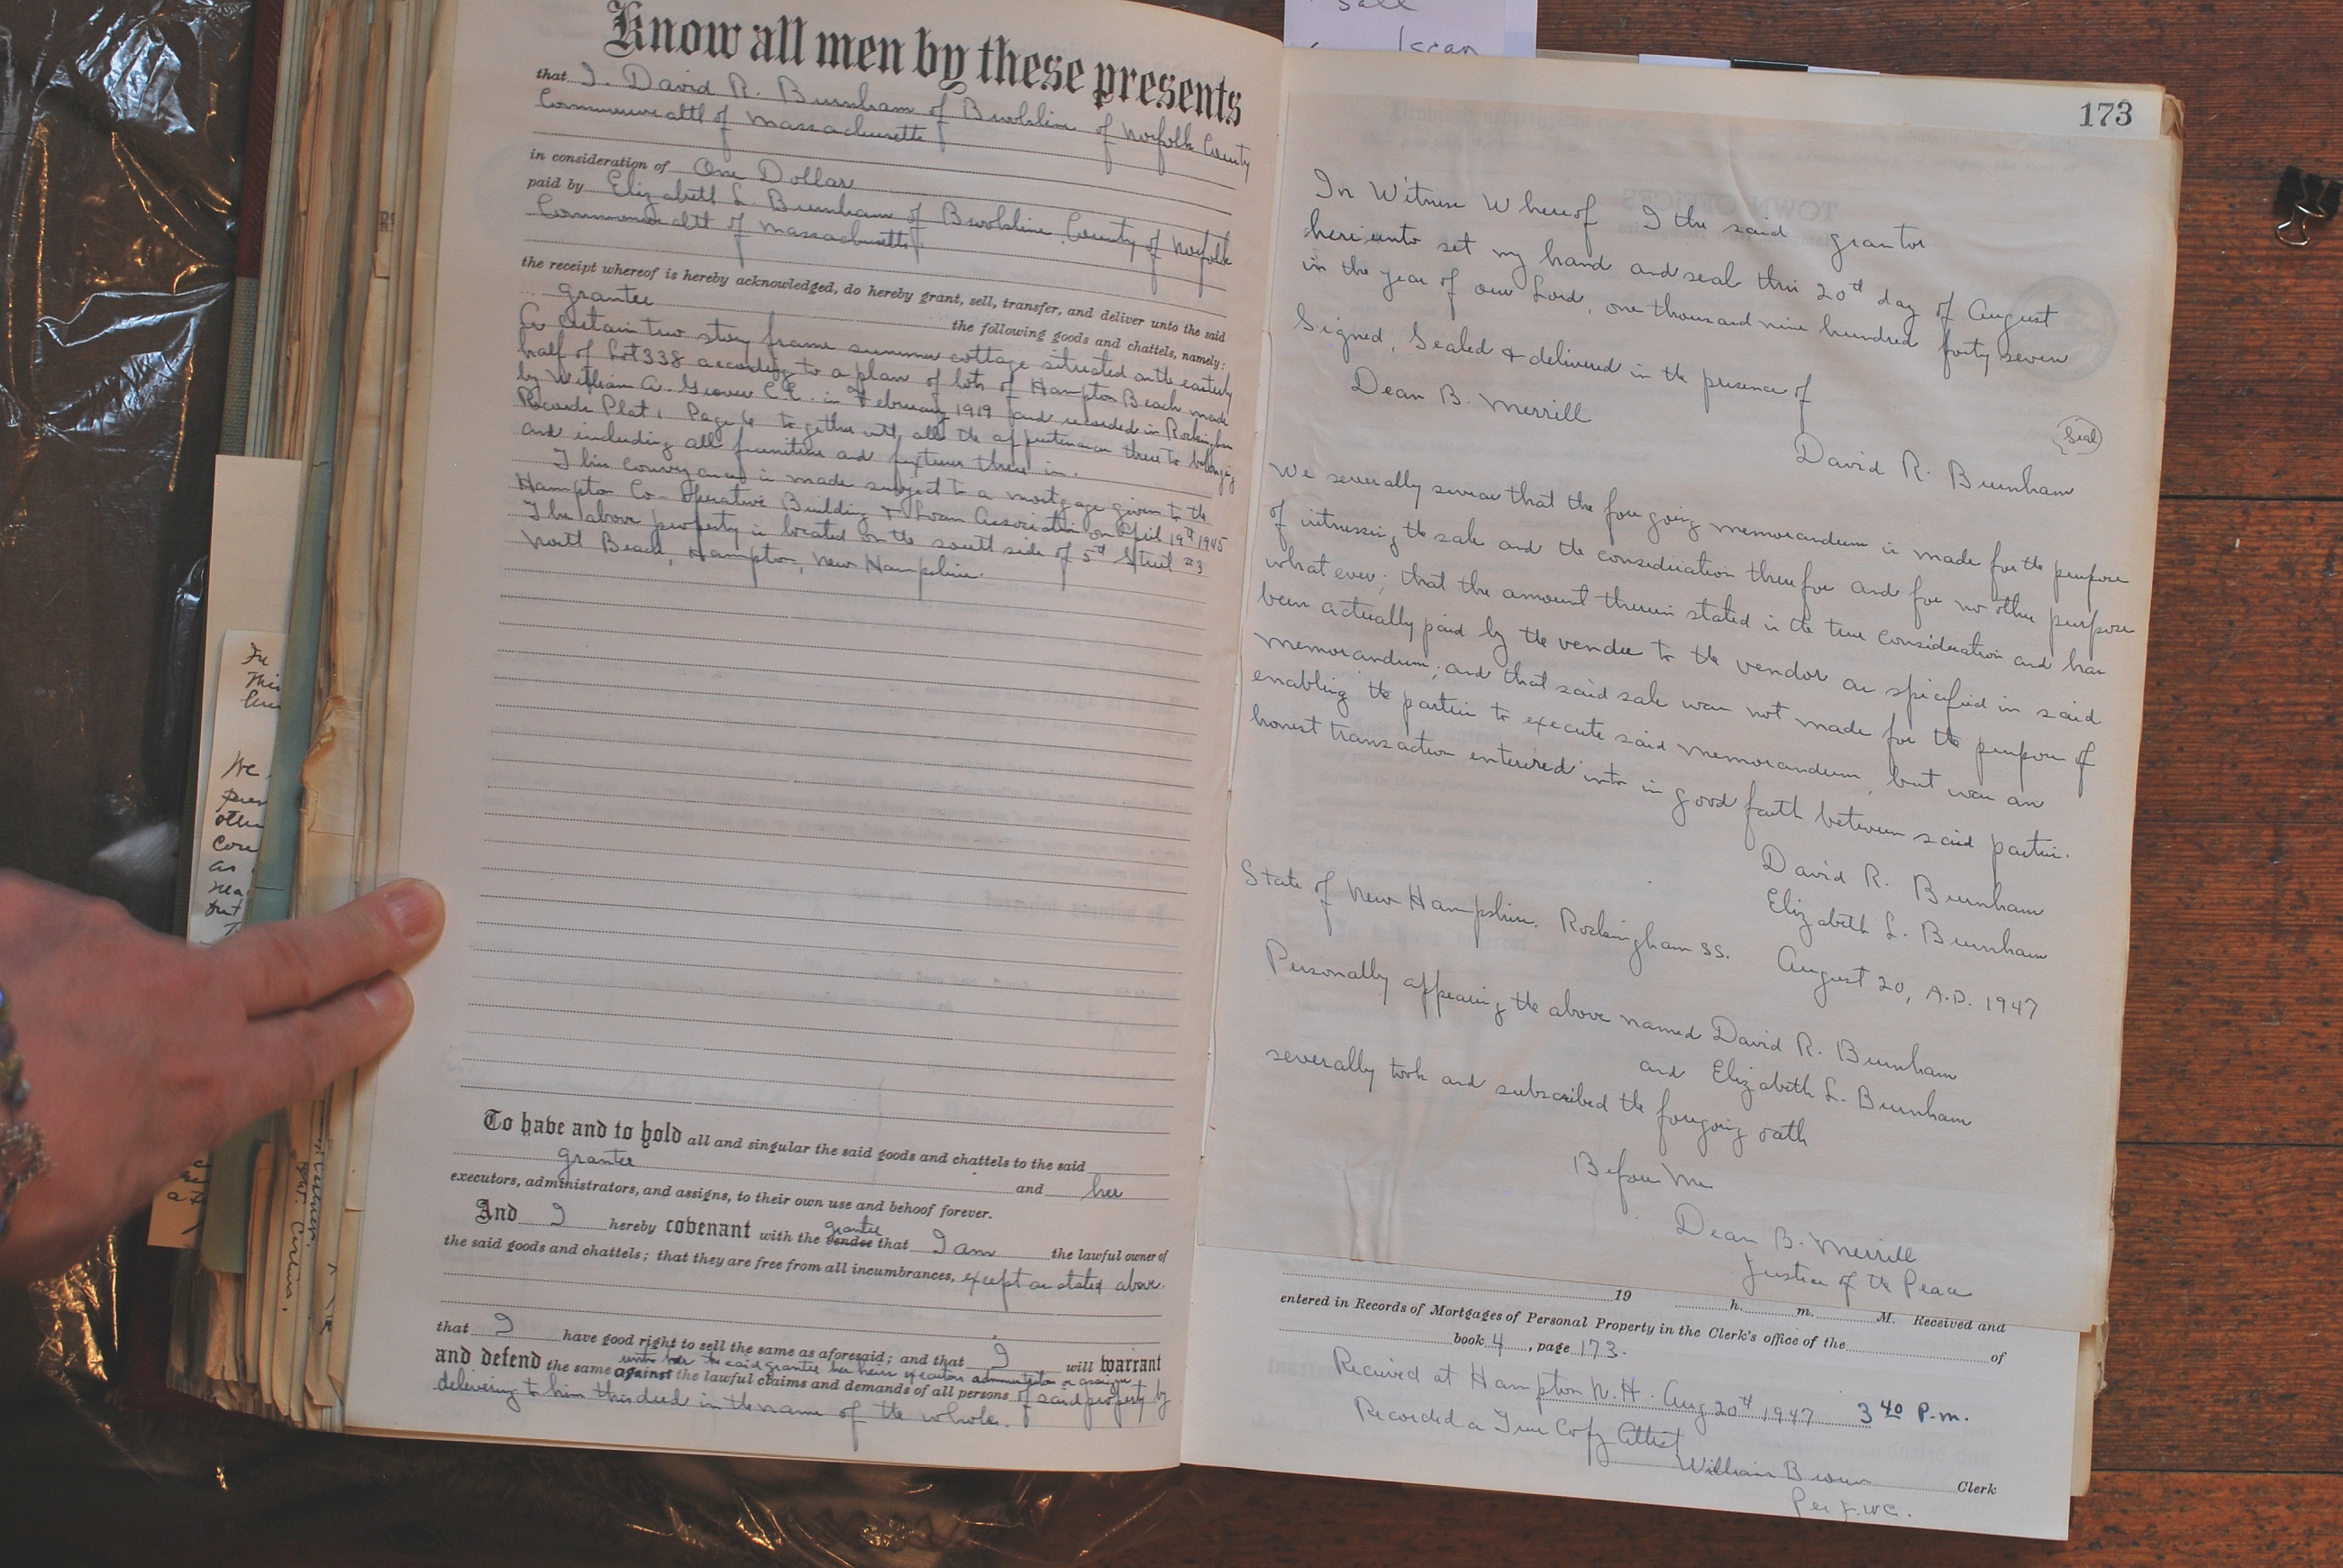 Know all men by these presents
that I, David R. Burnham of Brookline of Norfolk County
Commonwealth of Massachusetts
in consideration of One Dollar
paid by Elizabeth L. Burnham of Brookline, County of Norfolk
Commonwealth of Massachusetts,
the receipt whereof is hereby acknowledged, do hereby grant, sell, transfer, and deliver unto the said
grantee the following goods and chattels, namely:
A certain two story frame summer cottage situated on the easterly
half of Lot 338 according to a plan of lots of Hampton Beach made
by William A. Grover C.E. in February 1919 and recorded in Rockingham
Records Plat 1 Page 6 together with all the appurtenances thereto belonging
and including all furniture and fixtures therein.
This conveyance is made subject to a mortgage given to the
Hampton Co-operative Building & Loan Association on April 19th 1945
The above property is located on the south side of 5th Street #3
North Beach, Hampton, New Hampshire.
To have and to hold all and singular the said goods and chattels to the said
grantee and her
executors, administrators, and assigns, to their own use and behoof forever.
And I hereby covenant with the grantee vendee that I am the lawful owner of
the said goods and chattels; that they are free from all incumbrances, except as stated above.
that I have good right to sell the same as aforesaid; and that I will warrant
unto her the said grantee her heirs executors administrators or assigns
and defend the same against the lawful claims and demands of all persons of said property by
delivering to him this deed in the name of the whole.
173
In Witness Whereof I the said grantor
hereunto set my hand and seal this 20th day of August
in the year of our Lord, one thousand nine hundred forty seven
Signed, Sealed & delivered in the presence of
Dean B. Merrill
Seal
David R. Burnham
We severally swear that the foregoing memorandum is made for the purpose
of witnessing the sale and the consideration therefor and for no other purpose
whatever; that the amount therein stated is the true consideration and has
been actually paid by the vendee to the vendor as specified in said
memorandum; and that said sale was not made for the purpose of
enabling the parties to execute said memorandum, but was an
honest transaction entered into in good faith between said parties.
David R. Burnham
Elizabeth L. Burnham
State of New Hampshire. Rockingham SS. August 20, A.D. 1947
Personally appearing the above named David R. Burnham
and Elizabeth L. Burnham
severally took and subscribed the foregoing oath
Before Me
Dean B. Merrill
Justice of the Peace
19 h. m. M. Received and
entered in Records of Mortgages of Personal Property in the Clerk's office of the
of
book 4, page 173.
Received at Hampton N.H. Aug 20th 1947 3 40 P.m.
Recorded a True Copy Attest
William Brown Clerk
Per F.W.C.